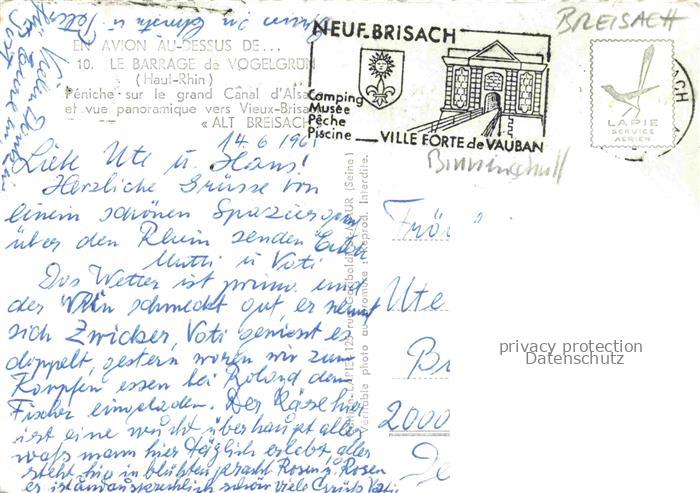 EN AVION AU-DESSUS DE...
10. LE BARRAGE de VOGELGRUN
(Haut-Rhin)
Péniche sur le grand Canal d'Alsa
et vue panoramique vers Vieux-Brisa
« ALT BREISACH
NEUF-BRISACH
Camping
Musée
Pêche
Piscine
VILLE FORTE de VAUBAN
BREISACH
LAPIE
SERVICE
AERIEN
ACH
14.6.196
Liebe Ute u. Hans!
Herzliche Grüsse von
einem schönen Spaziergang
über den Rhein senden Euch
Mutti u Vati
Das Wetter ist prima und
der Wein schmeckt gut, er nennt
sich Zwicker, Vati geniest es
doppelt, gestern waren wir zum
Karpfen essen bei Roland dem
Fischer eingeladen. Der Käse hier
ist eine wucht überhaupt alles
wass mann hier täglich erlebt alles
steht hir in blühten pracht Rosen u. Rosen
er ist unaussprechlich schön viele Grüße Vati
Véritable photo au bromure - Reprod. interdite.
Fräu
Ute
Br
2000
De
privacy protection
Datenschutz